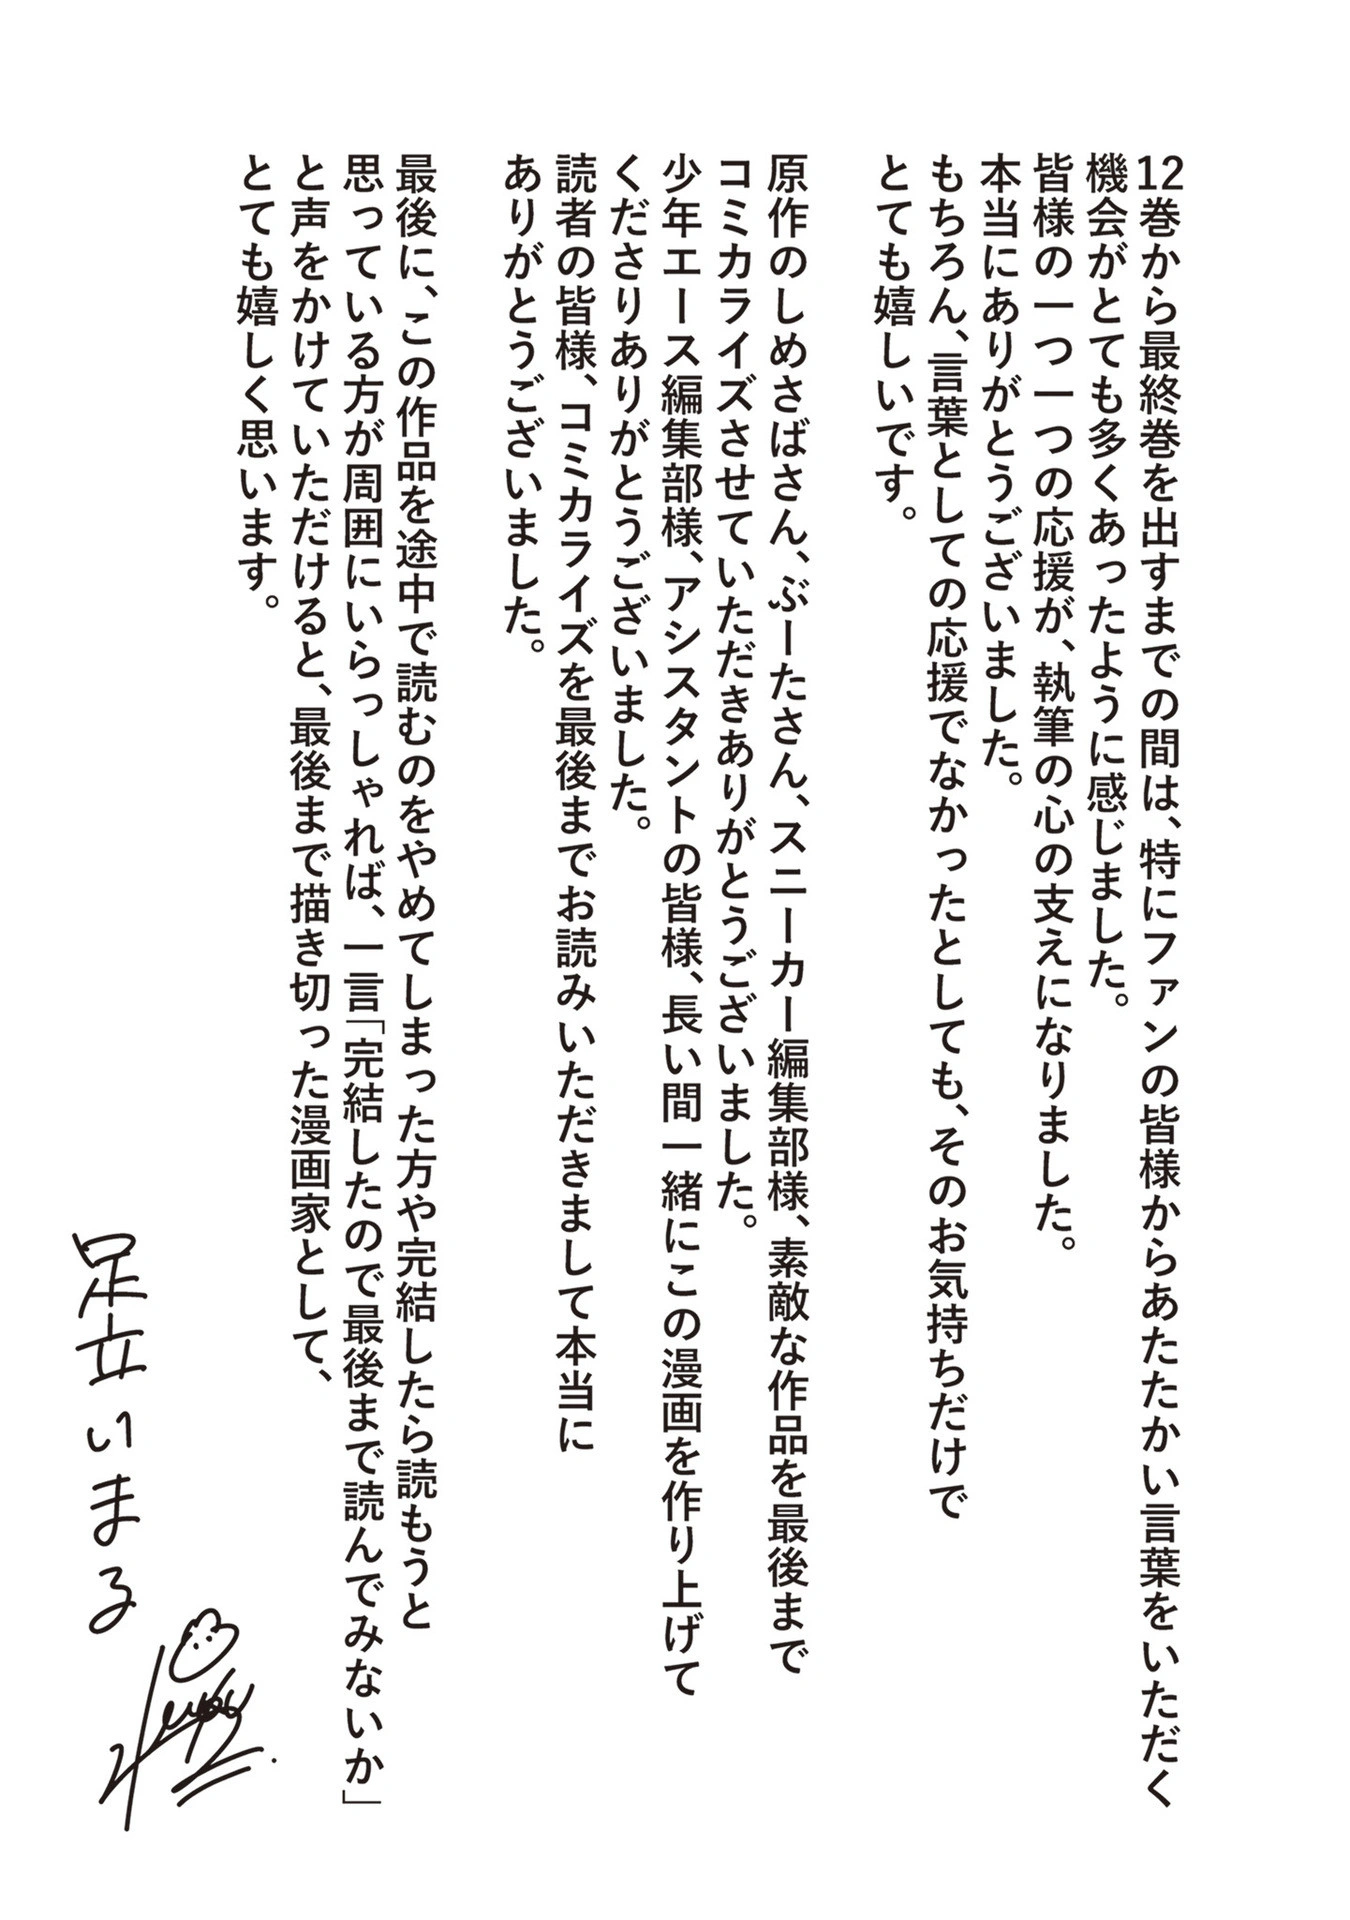 12巻から最終巻を出すまでの間は、特にファンの皆様からあたたかい言葉をいただく
機会がとても多くあったように感じました。
皆様の一つ一つの応援が、執筆の心の支えになりました。
本当にありがとうございました。
もちろん、言葉としての応援でなかったとしても、そのお気持ちだけで
とても嬉しいです。
原作のしめさばさん、ぶーたさん、スニーカー編集部様、素敵な作品を最後まで
コミカライズさせていただきありがとうございました。
少年エース編集部様、アシスタントの皆様、長い間一緒にこの漫画を作り上げて
くださりありがとうございました。
読者の皆様、コミカライズを最後までお読みいただきまして本当に
ありがとうございました。
最後に、この作品を途中で読むのをやめてしまった方や完結したら読もうと
思っている方が周囲にいらっしゃれば、一言「完結したので最後まで読んでみないか」
と声をかけていただけると、最後まで描き切った漫画家として、
とても嬉しく思います。
足立いまる